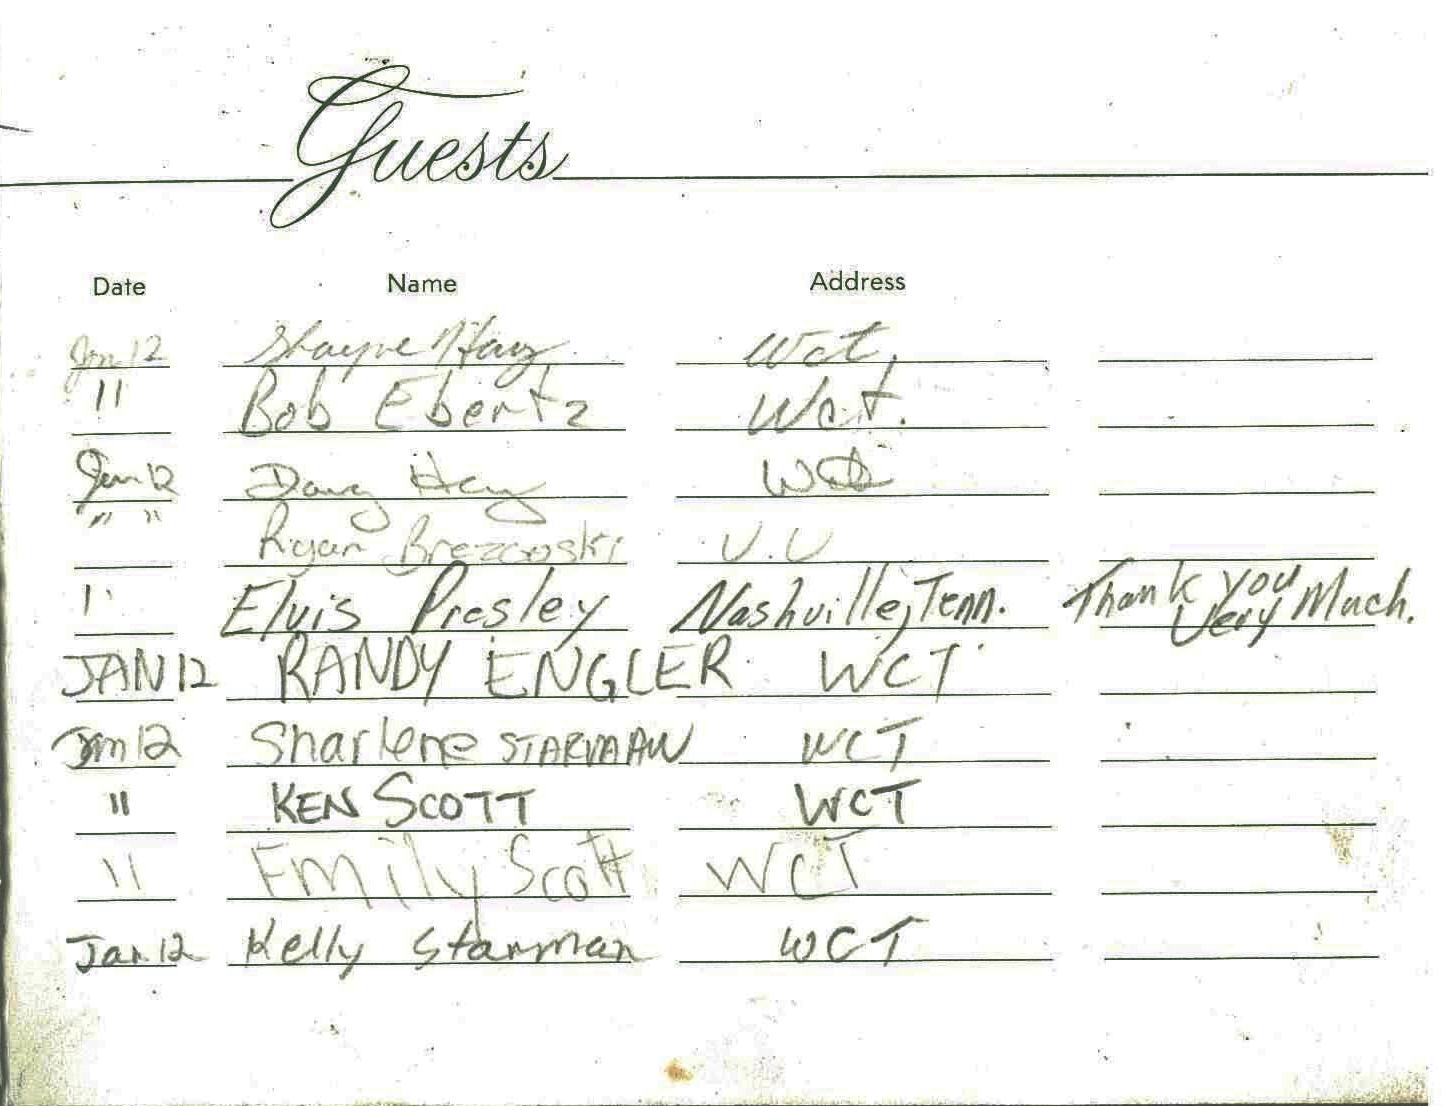 Guests
Date Name Address
Jan 12 Shayne Hay Wct.
" Bob Ebertz Wct.
Jan 12 Doug Hay Wct
" " Ryan V.U
" Elvis Presley Nashville, Tenn. Thank you Very Much.
JAN 12 RANDY ENGLER WCT
Jan 12 Sharlene WCT
" KEN SCOTT WCT
" Emily Scott WCT
Jan. 12 Kelly Starman WCT